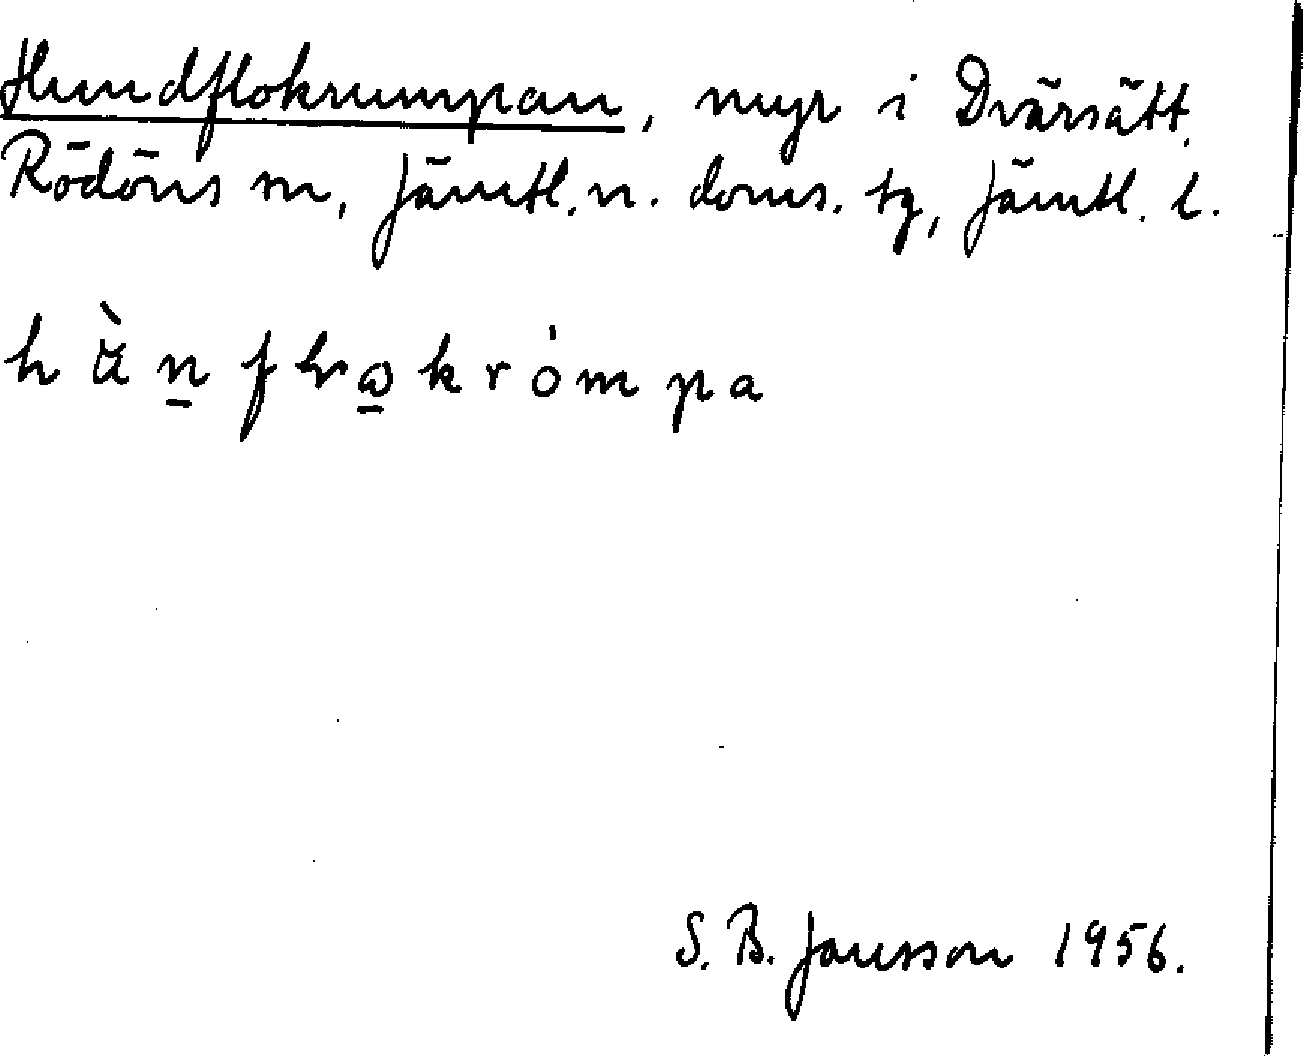 Hundflokrumpan, myr i Dvärsätt,
Rödöns sn, Jämtl. n. doms. tg, Jämtl. l.
h ὰ n̠ f lr ω̠ k r ȯ m p a
S. B. Jansson 1956.